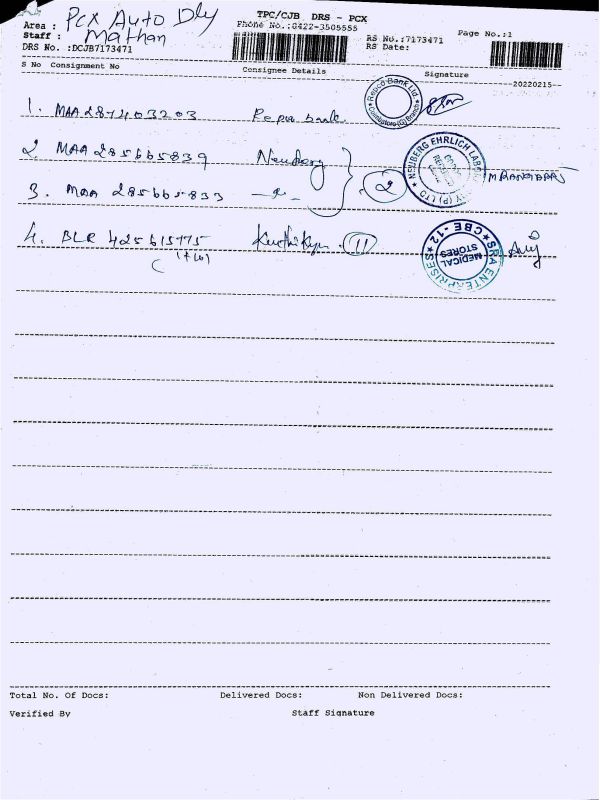 TPC/CJB DRS - PCX
Area : PCX Auto Dly
Phone No.:0422-3505555
Staff : Mathan
RS No.:7173471
Page No.:1
DRS No. :DCJB7173471
RS Date:
S No Consignment No Consignee Details Signature
--20220215--
1. MAA 287403203 Repco bank
Repco Bank Ltd.
Coimbatore (G) Branch
2. MAA 285665839 Neuberg
3. MAA 285665833 -"-
2
NEUBERG EHRLICH LAB
(P) LTD
4. BLR 425615775 Karthikeyan 11
(1+10)
SRA ENTERPRISES
CBE - 12
MEDICAL STORES
Total No. Of Docs: Delivered Docs: Non Delivered Docs:
Verified By Staff Signature